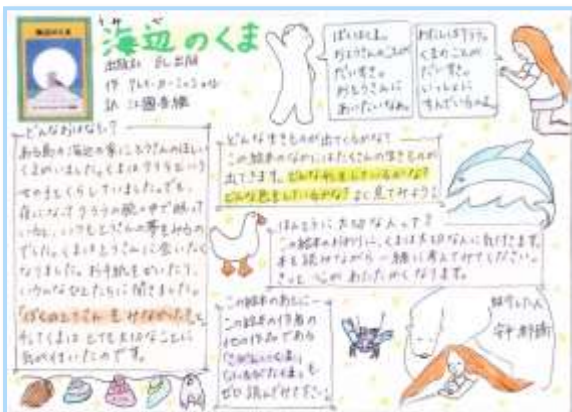 海辺のくま
海辺のくま
出版社 BL出版
作 クレイ・カーミッシェル
訳 江國香織
ぼくはくま。
おとうさんのことが
だいすき。
おとうさんに
あいたいなぁ。
わたしはクララ。
くまのことが
だいすき。
いっしょに
すんでいるのよ。
どんなおはなし?
ある島の海辺の家に、とうさんのほしい
くまがいました。くまはクララという
女の子とくらしていました。でも、
夜になってクララの腕の中で眠って
いると、いつもとうさんの夢をみるの
でした。くまはとうさんに会いたく
なりました。お手紙をかいたり、
いろいろなひとたちに聞きました。
「ぼくのとうさんをみなかった?」と
そしてくまはとても大切なことに
気が付いたのです。
どんな生きものが出てくるかな?
この絵本のなかにはたくさんの生きものが
出てきます。どんな形をしているかな?
どんな色をしているかな?よく見てみよう!
ほんとうに大切な人って?
この絵本のおわりに、くまは大切な人に気付きます。
本を読みながら一緒に考えてみてください。
きっと心があたたかくなります。
この絵本のあとに…
この絵本の作者の
他の作品である
も
ぜひ読んでみて下さい。
紹介した人